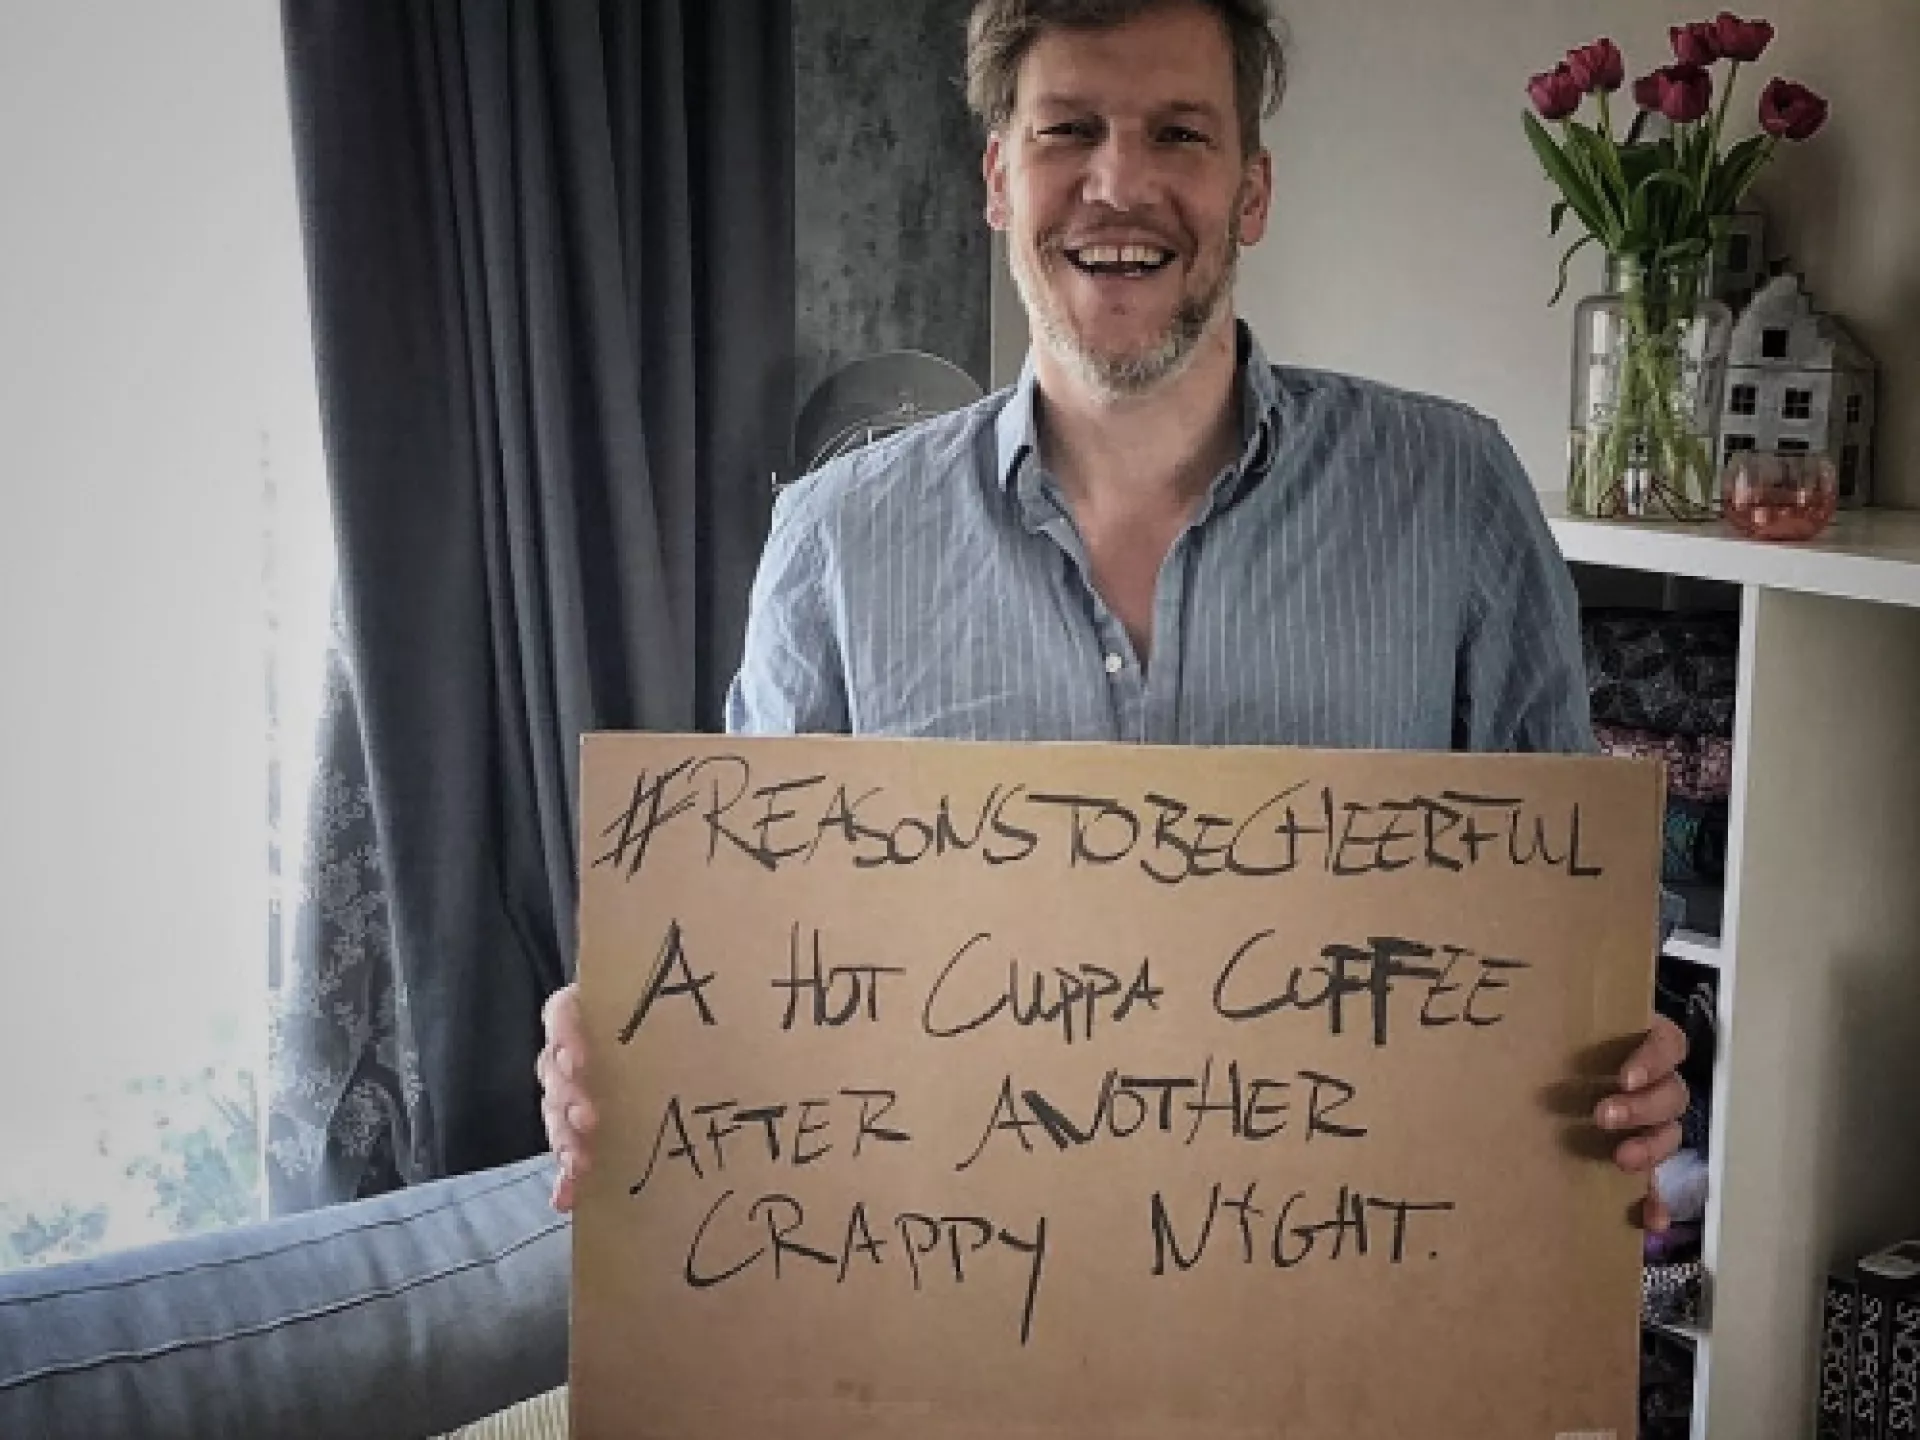 #REASONSTOBECHEERFUL
A HOT CUPPA COFFEE
AFTER ANOTHER
CRAPPY NIGHT.